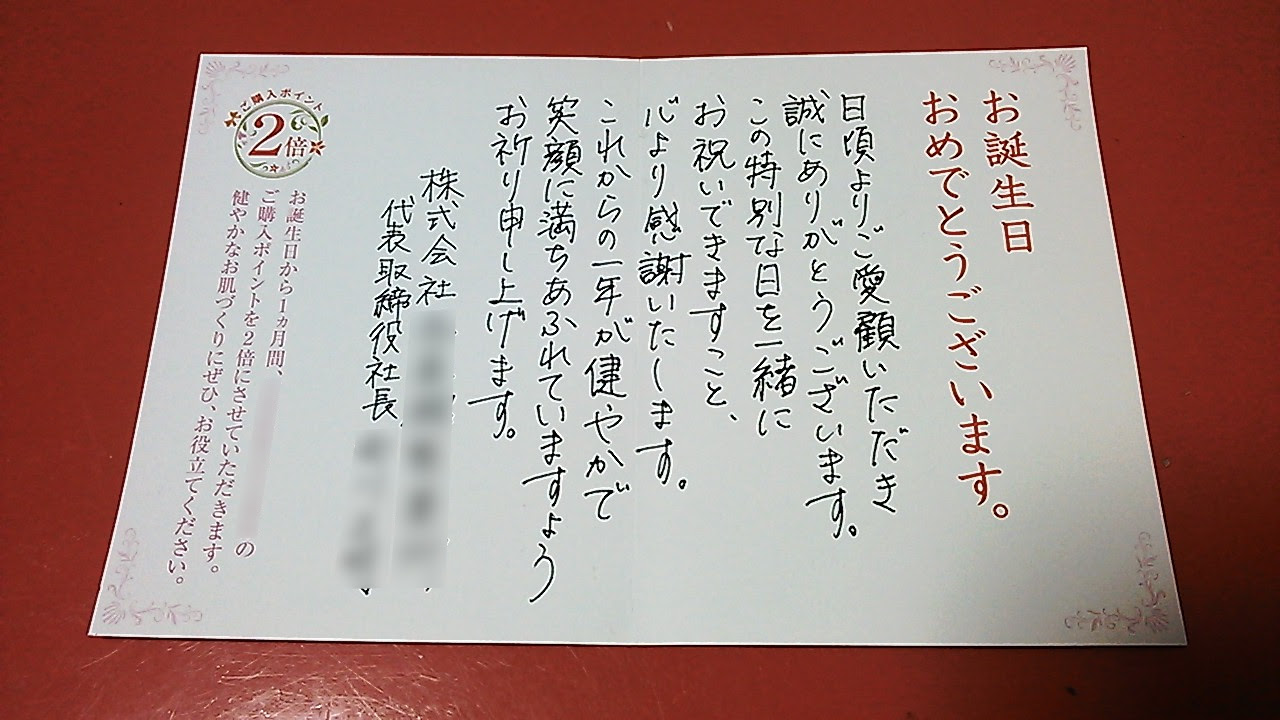 お誕生日
おめでとうございます。
日頃よりご愛顧いただき
誠にありがとうございます。
この特別な日を一緒に
お祝いできますこと、
心より感謝いたします。
これからの一年が健やかで
笑顔に満ちあふれていますよう
お祈り申し上げます。
株式会社
代表取締役社長
ご購入ポイント
2倍
お誕生日から1ヵ月間、の
ご購入ポイントを2倍にさせていただきます。
健やかなお肌づくりにぜひ、お役立てください。